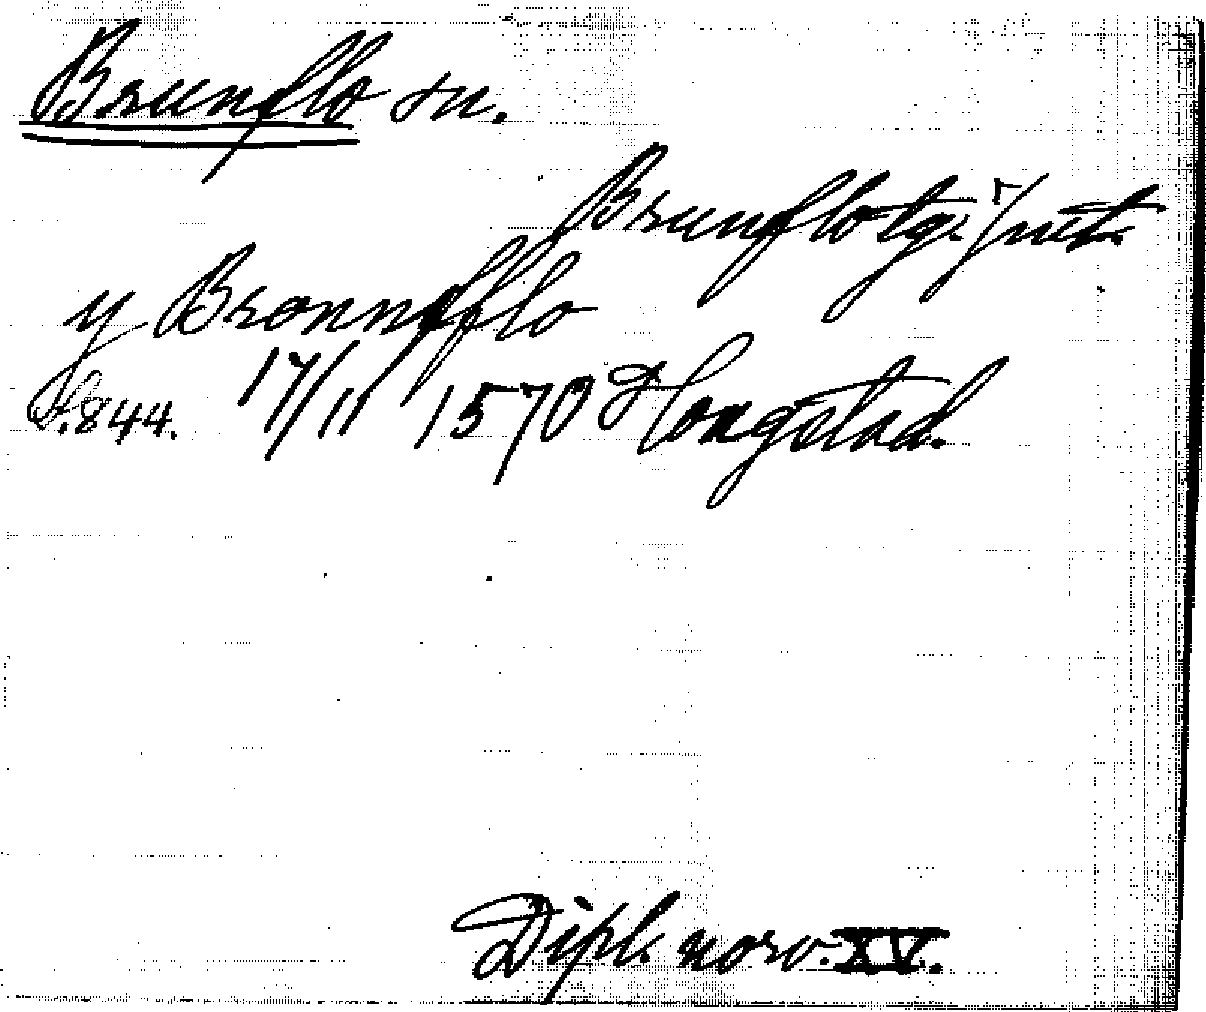 Brunflo sn.
Brunflo tg. Jmt.
y Bronnflo
S.844. 17/11 1570 Hongstad.
Dipl. norv. XV.